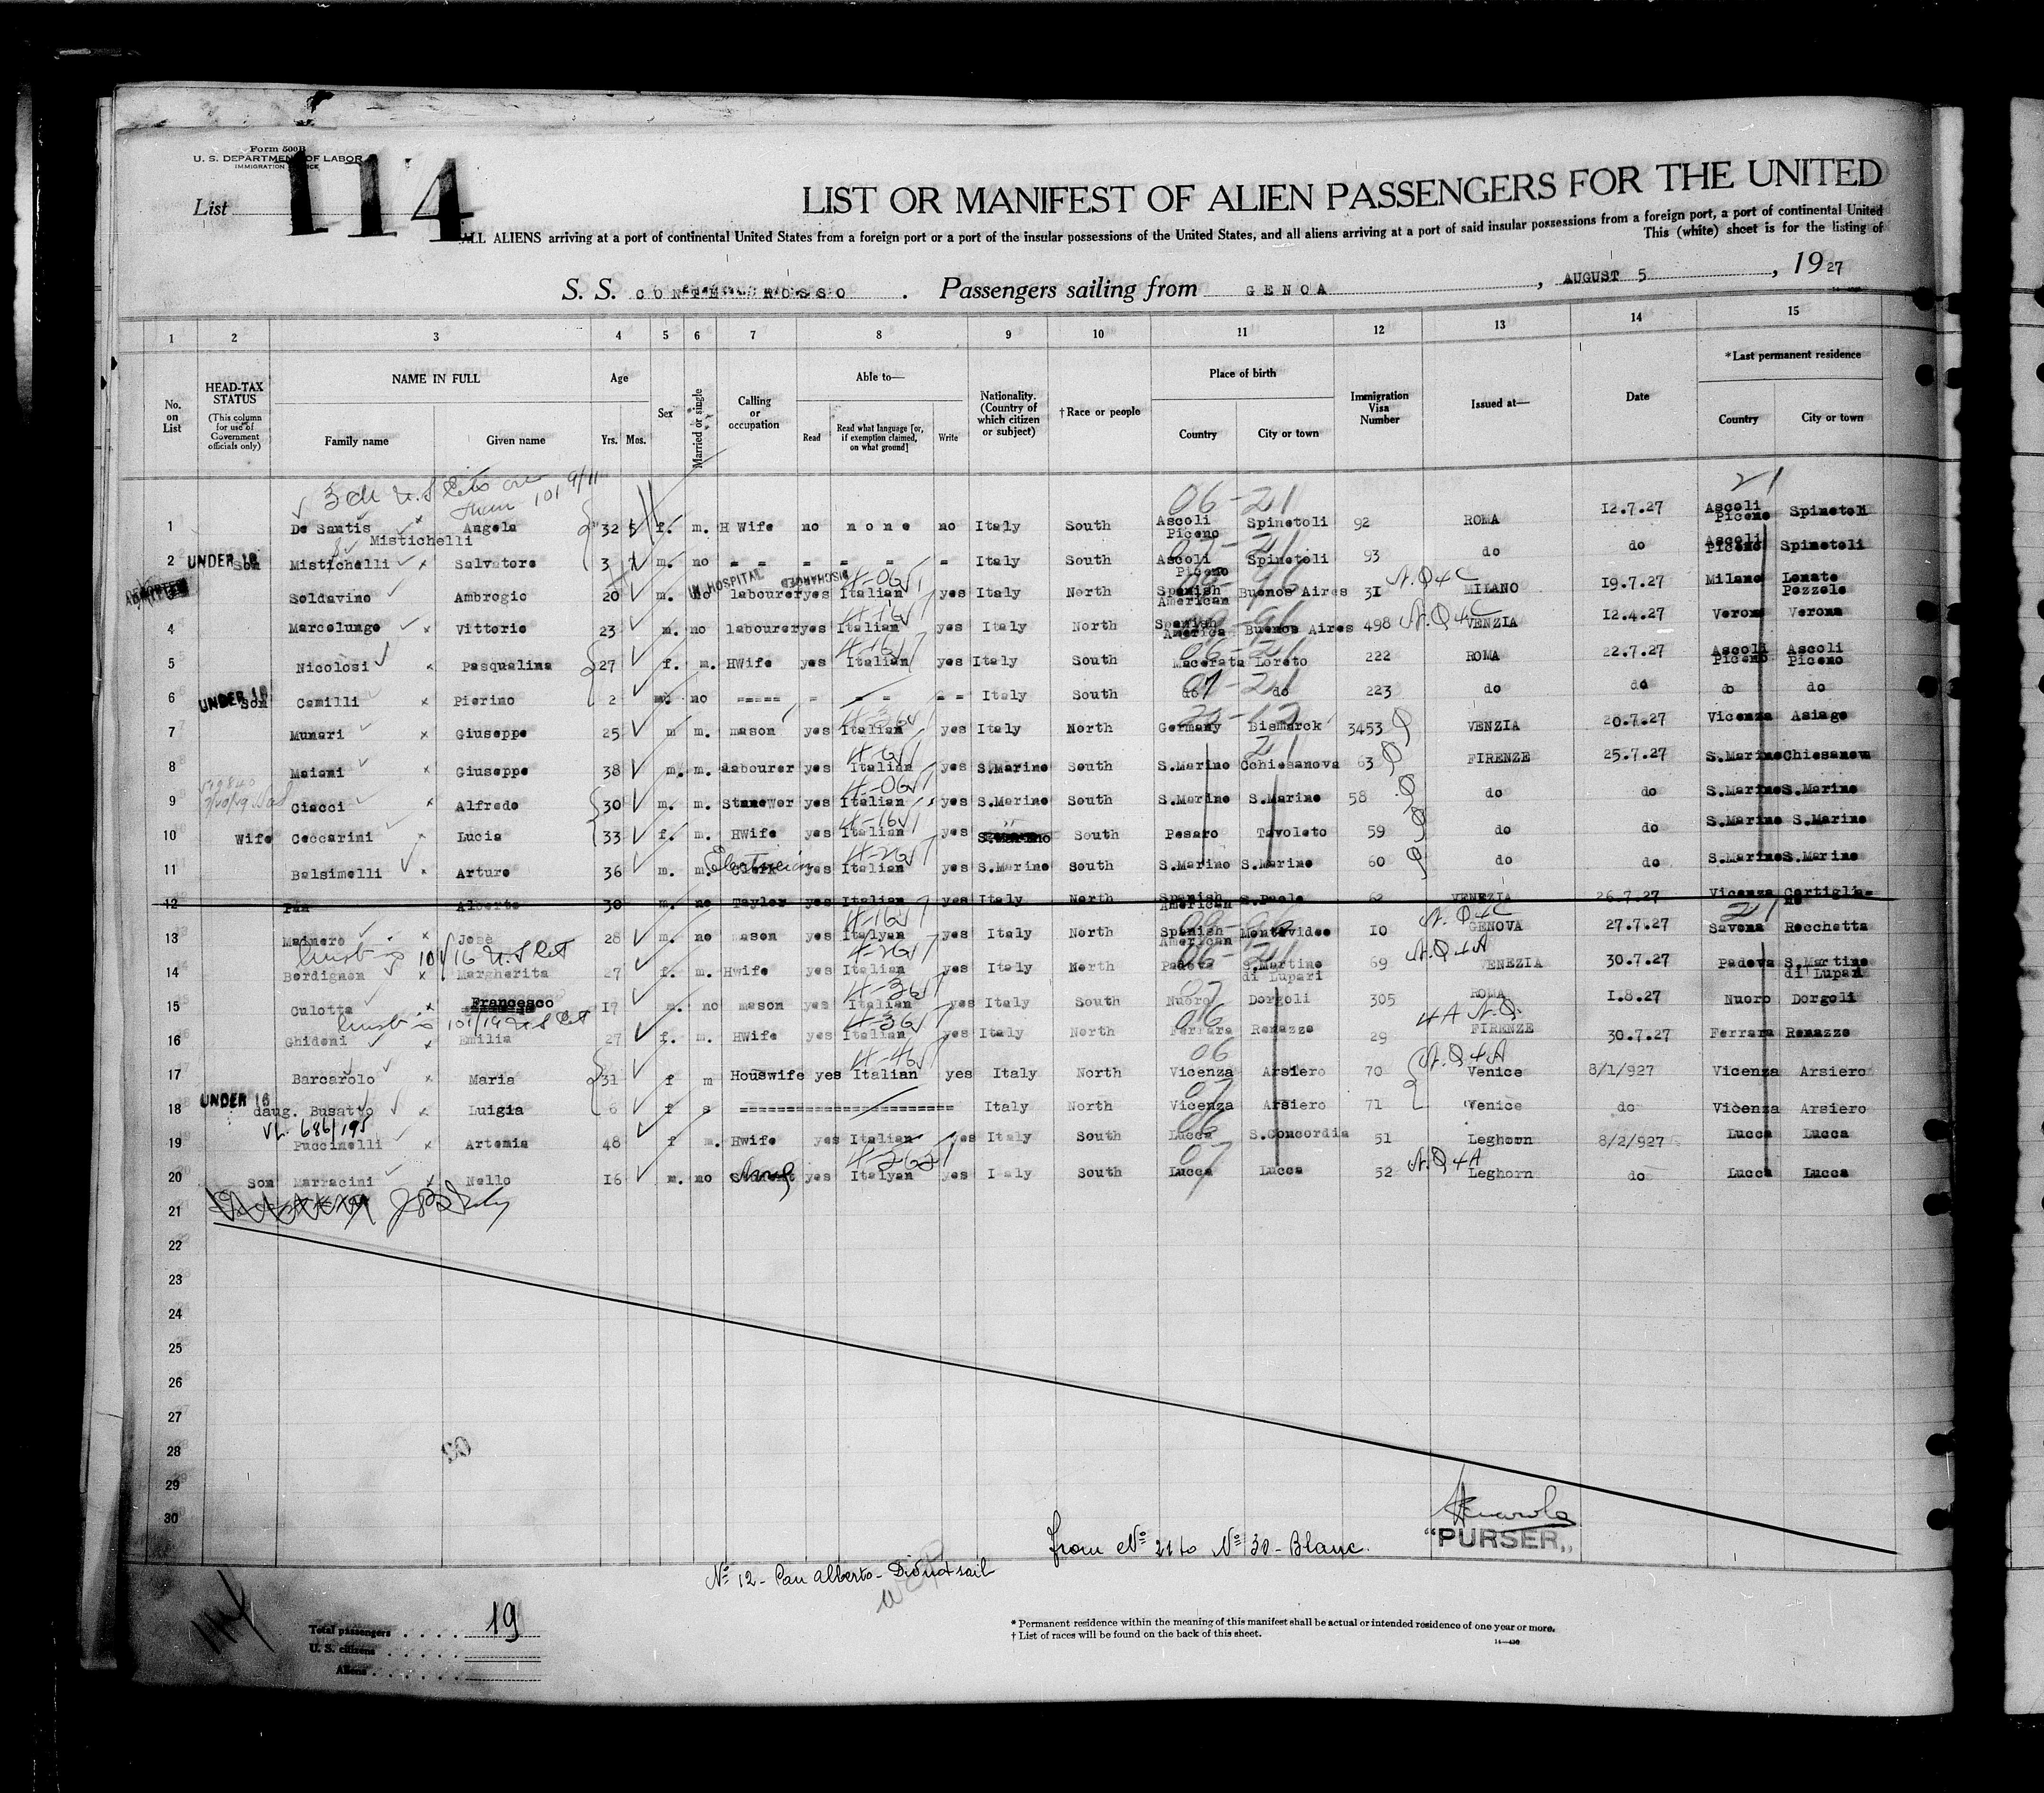 Form 500B
U. S. DEPARTMENT OF LABOR
IMMIGRATION SERVICE
List 114
LIST OR MANIFEST OF ALIEN PASSENGERS FOR THE UNITED
ALL ALIENS arriving at a port of continental United States from a foreign port or a port of the insular possessions of the United States, and all aliens arriving at a port of said insular possessions from a foreign port, a port of continental United
This (white) sheet is for the listing of
S. S. CONTE ROSSO . Passengers sailing from GENOA , AUGUST 5 , 1927
1 2 3 4 5 6 7 8 9 10 11 12 13 14 15
No. on List
HEAD-TAX STATUS (This column for use of Government officials only)
NAME IN FULL Family name Given name
Age Yrs. Mos.
Sex
Married or single
Calling or occupation
Able to— Read Read what language [or, if exemption claimed, on what ground] Write
Nationality. (Country of which citizen or subject)
† Race or people
Place of birth Country City or town
Immigration Visa Number
Issued at—
Date
*Last permanent residence Country City or town
1 De Santis Mistichelli Angela 32 f. m. H Wife no none no Italy South Ascoli Piceno Spinetoli 92 ROMA 12.7.27 Ascoli Piceno Spinetoli
2 UNDER 16 Son Mistichelli Salvatore 3 m. no - - - - - Italy South Ascoli Piceno Spinetoli 93 do do Ascoli Piceno Spinetoli
IN HOSPITAL DISCHARGED
Soldavino Ambrogio 20 m. no labourer yes Italian yes Italy North Spanish American Buenos Aires 31 N.Q4C MILANO 19.7.27 Milano Lonate Pozzolo
4 Marcolungo Vittorio 23 m. no labourer yes Italian yes Italy North Spanish America Buenos Aires 498 N.Q4C VENZIA 12.4.27 Verona Verona
5 Nicolosi Pasqualina 27 f. m. HWife yes Italian yes Italy South Macerata Loreto 222 ROMA 22.7.27 Ascoli Piceno Ascoli Piceno
6 UNDER 16 Son Camilli Pierino 2 m. no ----- - - - - - Italy South do do 223 do do do do
7 Munari Giuseppe 25 m m. mason yes Italian yes Italy North Germany Bismarck 3453 VENZIA 20.7.27 Vicenza Asiago
8 Maiani Giuseppe 38 m. m. labourer yes Italian yes S.Marino South S.Marino Cchiesanova 63 FIRENZE 25.7.27 S.Marino Chiesanova
9 Ciacci Alfredo 30 m. m. yes Italian yes S.Marino South S.Marino S.Marino 58 do do S.Marino S.Marino
10 Wife Ceccarini Lucia 33 f. m. HWife yes Italian yes S.Marino South Pesaro Tavoleto 59 do do S.Marino S.Marino
11 Balsimelli Arturo 36 m. m. Clerk Electrician yes Italian yes S.Marino South S.Marino S.Marino 60 do do S.Marino S.Marino
12 Pan Alberto 30 m. no Taylor yes Italian yes Italy North Spanish American S.Paolo 62 VENEZIA 26.7.27 Vicenza
13 Mainero Jobe 28 m. no mason yes Italyan yes Italy North Spanish American Montevideo 10 N.Q4C GENOVA 27.7.27 Savona Rocchetta
14 Bordignon Margherita 27 f. m. Hwife yes Italian yes Italy North Padova S.Martino di Lupari 69 N.Q4A VENEZIA 30.7.27 Padova S.Martino di Lupari
15 Culotta Francesco 17 m. no mason yes Italian yes Italy South Nuoro Dorgoli 305 ROMA 1.8.27 Nuoro Dorgoli
16 Ghidoni Emilia 27 f. m. HWife yes Italian yes Italy North Ferrara Renazzo 29 4A N.Q. FIRENZE 30.7.27 Ferrara Renazzo
17 Barcarolo Maria 31 f m Houswife yes Italian yes Italy North Vicenza Arsiero 70 N.Q4A Venice 8/1/927 Vicenza Arsiero
18 UNDER 16 daug. Busatto Luigia 6 f s ======================= Italy North Vicenza Arsiero 71 Venice do Vicenza Arsiero
19 Puccinelli Artemia 48 f m. Hwife yes Italian yes Italy South Lucca S.Concordia 51 Leghorn 8/2/927 Lucca Lucca
20 Son Marracini Nello 16 m. no yes Italyan yes Italy South Lucca Lucca 52 N.Q4A Leghorn do Lucca Lucca
21
22
23
24
25
26
27
28
29
30
"PURSER"
From Nº 21 to Nº 30 - Blanc.
Nº 12 - Pan Alberto - Did not sail
114
Total passengers . . . . 19
U. S. citizens . . . . .
Aliens . . . . . .
* Permanent residence within the meaning of this manifest shall be actual or intended residence of one year or more.
† List of races will be found on the back of this sheet.
14—430